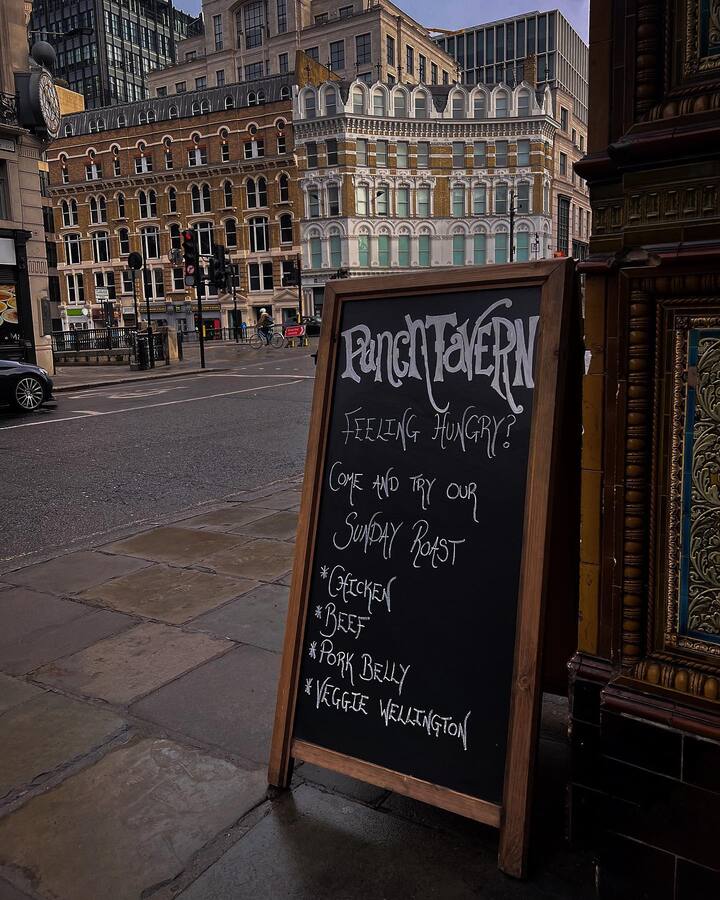 Punch Tavern
Feeling Hungry?
Come and try our
Sunday Roast
*Chicken
*Beef
*Pork Belly
*Veggie Wellington